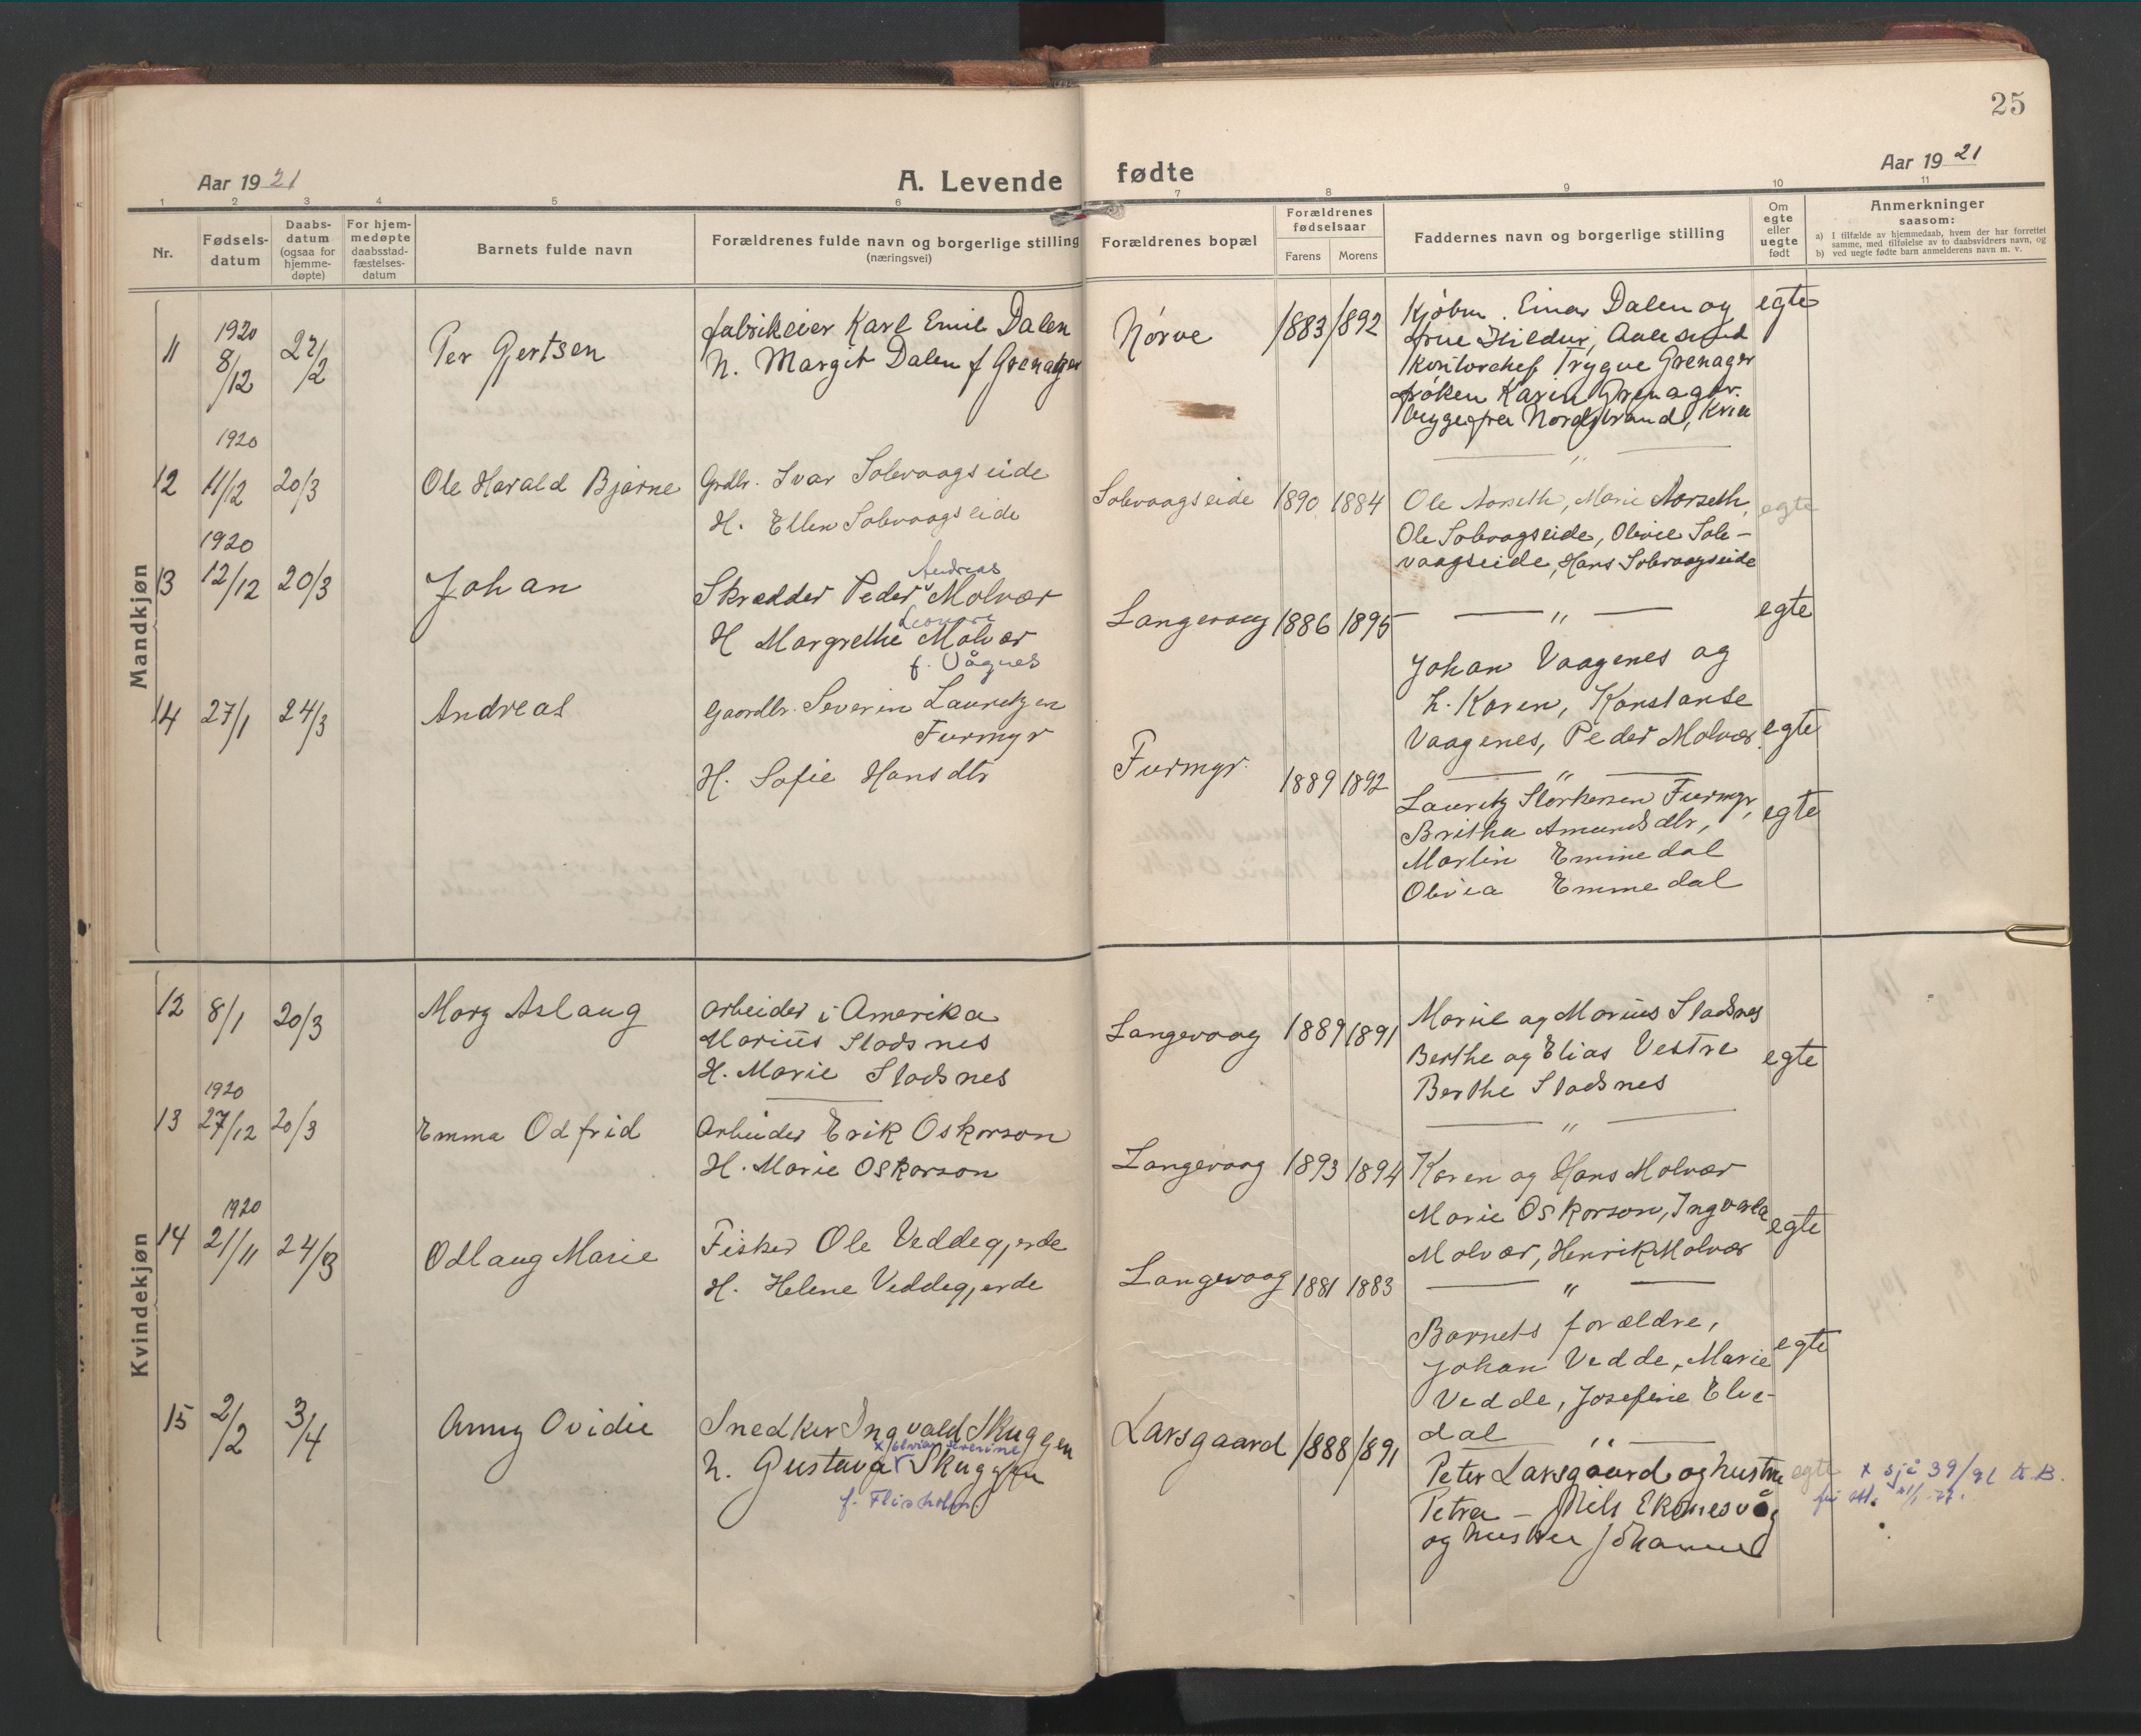 25
Aar 1921
A. Levende fødte
Aar 1921
1 2 3 4 5 6 7 8 9 10 11
Nr.
Fødsels-
datum
Daabs-
datum
(ogsaa for
hjemme-
døpte)
For hjem-
medøpte
daabsstad-
fæstelses-
datum
Barnets fulde navn
Forældrenes fulde navn og borgerlige stilling
(næringsvei)
Forældrenes bopæl
Forældrenes
fødselsaar
Farens
Morens
Faddernes navn og borgerlige stilling
Om
egte
eller
uegte
født
Anmerkninger
saasom:
a) I tilfælde av hjemmedaab, hvem der har forrettet
samme, med tilføielse av to daabsvidners navn, og
b) ved uegte fødte barn anmelderens navn m. v.
Mandkjøn
11
1920
8/12
27/2
Per Gjertsen
fabrikeier Karl Emil Dalen
h. Margit Dalen f Grenager
Nørve
1883
1892
Kjøbm. Einar Dalen og
frue Hildur, Aalesund
Kontorchef Trygve Grenager
frøken Karin Grenager.
begge fra Nordstrand, Kria
egte
12
1920
11/12
20/3
Ole Harald Bjarne
Grdbr. Ivar Solevaagseide
H. Ellen Solevaagseide
Solevaagseide
1890
1884
Ole Aarseth, Marie Aarseth,
Ole Solevagseide, Olivie Sole-
vaagseide, Hans Solevaagseide
egte
13
1920
12/12
20/3
Johan
Andreas
Skrædder Peder Molvær
Leonore
H Margrethe Molvær
f. Vågnes
Langevaag
1886
1895
— " —
egte
Johan Vaagenes og
h. Karen, Konstanse
Vaagenes, Peder Molvær
egte
14
27/1
24/3
Andreas
Gaardbr. Severin Lauritzen
Furmyr
H. Sofie Hansdtr
Furmyr.
1889
1892
— " —
Lauritz Storkersen Furmyr,
Britha Amundsdtr,
Martin Emmedal
Olivia Emmedal
egte
Kvindekjøn
12
8/1
20/3
Marg Aslaug
Arbeider i Amerika
Marius Stadsnes
H. Marie Stadsnes
Langevaag
1889
1891
Marie og Marius Stadsnes
Berthe og Elias Vestre
Berthe Stadsnes
egte
13
1920
27/12
20/3
Emma Odfrid
Arbeider Erik Oskarson
H. Marie Oskarson
Langevaag
1893
1894
— " —
Karen og Hans Molvær
Marie Oskarson, Ingvarla
Molvær, Henrik Molvær
egte
14
1920
21/11
24/3
Odlaug Marie
Fisker Ole Veddegjerde
H. Helene Veddegjerde
Langevaag
1881
1883
— " —
Barnets forældre,
Johan Vedde, Marie
Vedde, Josefine Elve-
dal
egte
15
2/2
3/4
Anny Ovidie
Snedker Ingvald Skuggen
x Severine
h. Gustava Skuggen
f. Flisholm
Larsgaard
1888
1891
— " —
Peter Larsgaard og hustru
Petra — Nils Ekornesvåg
og hustru Johanne
egte
x sjå 39/